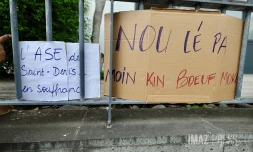 L'ASE de
Saint-Denis
en souffrance
NOU LÉ PA
MOIN KIN BOEUF MORI
IMAZ PRESS